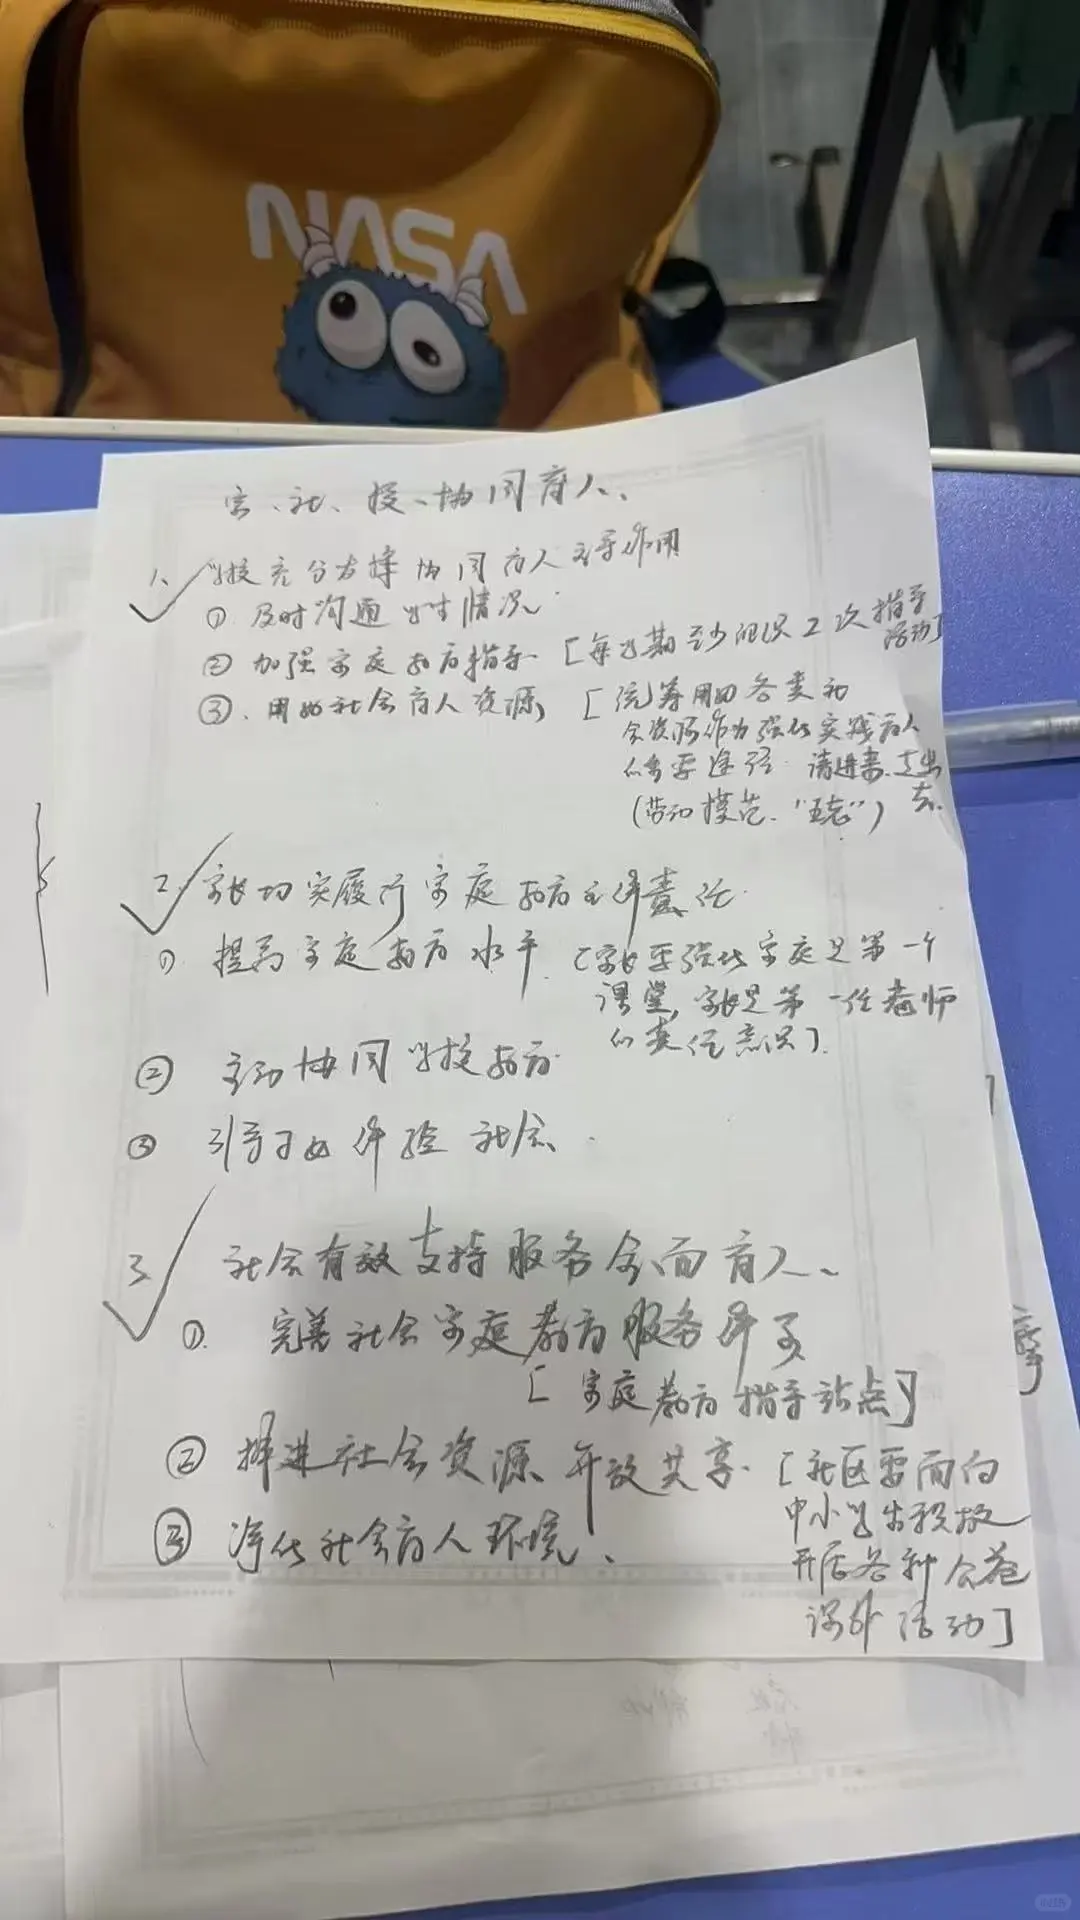 NASA
家、社、校、协同育人、
1、学校充分发挥协同育人主导作用
① 及时沟通学生情况
② 加强家庭教育指导 [每学期至少组织2次指导
活动]
③、用好社会育人资源 [统筹用好各类社
会资源作为强化实践育人
的重要途径 请进来、走出
去
(劳动模范、"五老")
2、家长切实履行家庭教育主体责任
① 提高家庭教育水平 [家长要强化家庭是第一个
课堂,家长是第一任老师
的责任意识]
② 主动协同学校教育
③ 引导子女体验社会
3、社会有效支持服务全面育人、
①. 完善社会家庭教育服务体系
[家庭教育指导站点]
② 推进社会资源开放共享 [社区要面向
中小学生积极
开展各种公益
课外活动]
③ 净化社会育人环境、